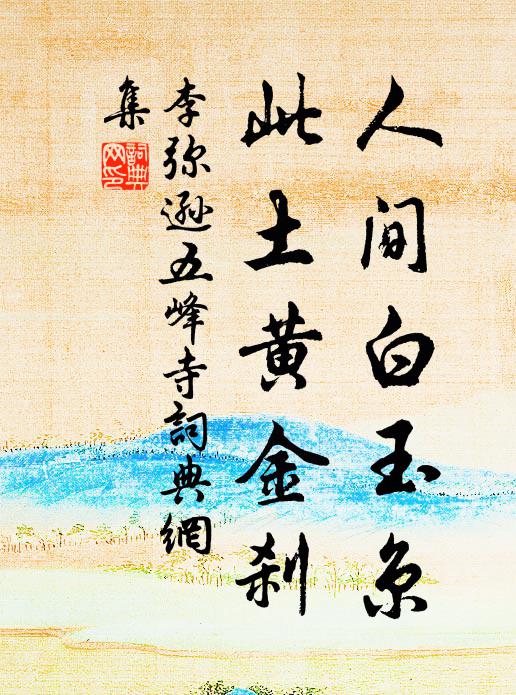 人间白玉京
此土黄金刹
李弥逊五峰寺詞典網
集
詞典網印